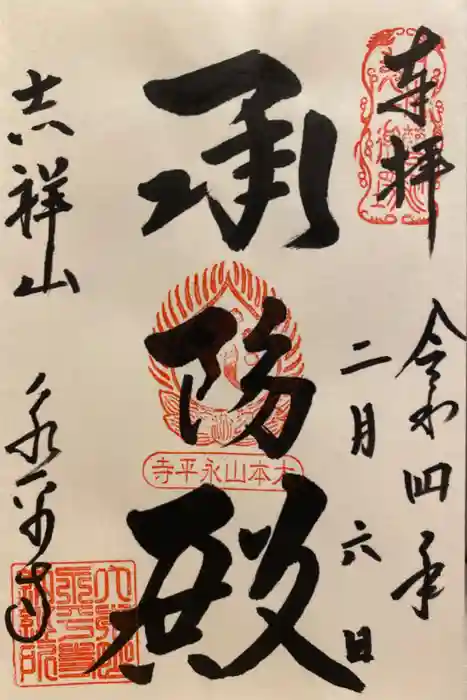 奉拝
令和四年
二月六日
承陽殿
大本山永平寺
吉祥山
永平寺